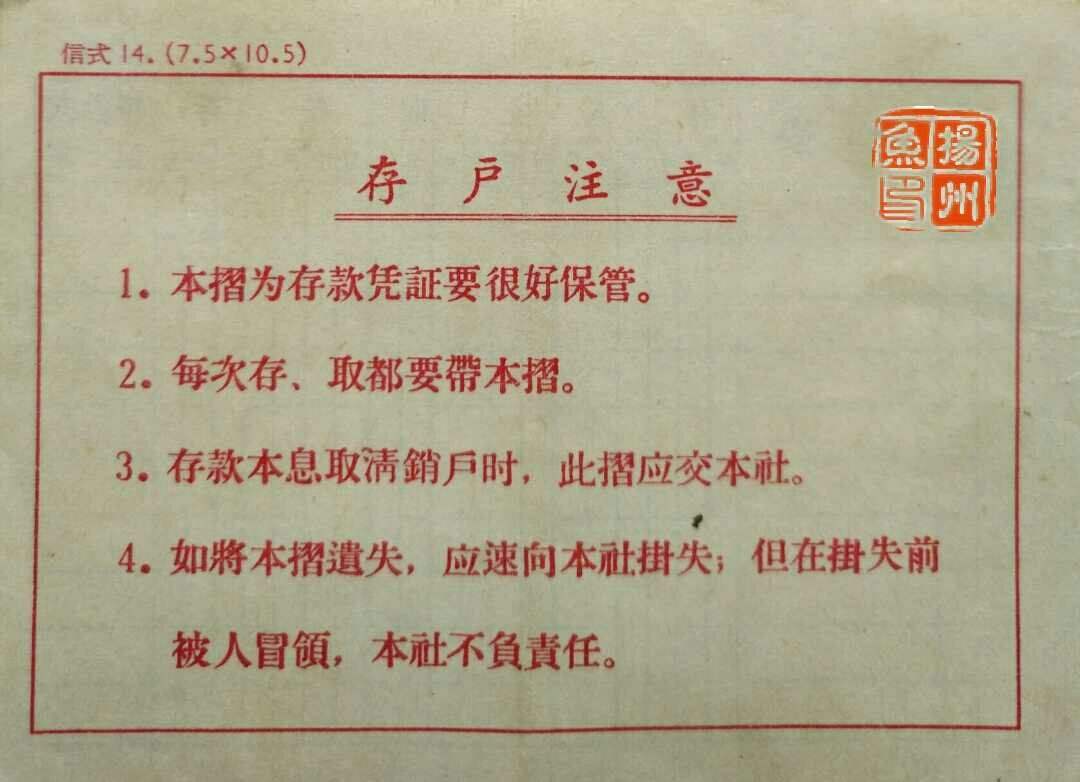 信式14.(7.5×10.5)
揚州
魚印
存戶注意
1. 本摺为存款凭証要很好保管。
2. 每次存、取都要帶本摺。
3. 存款本息取淸銷戶时，此摺应交本社。
4. 如將本摺遺失，应速向本社掛失；但在掛失前
被人冒領，本社不負責任。